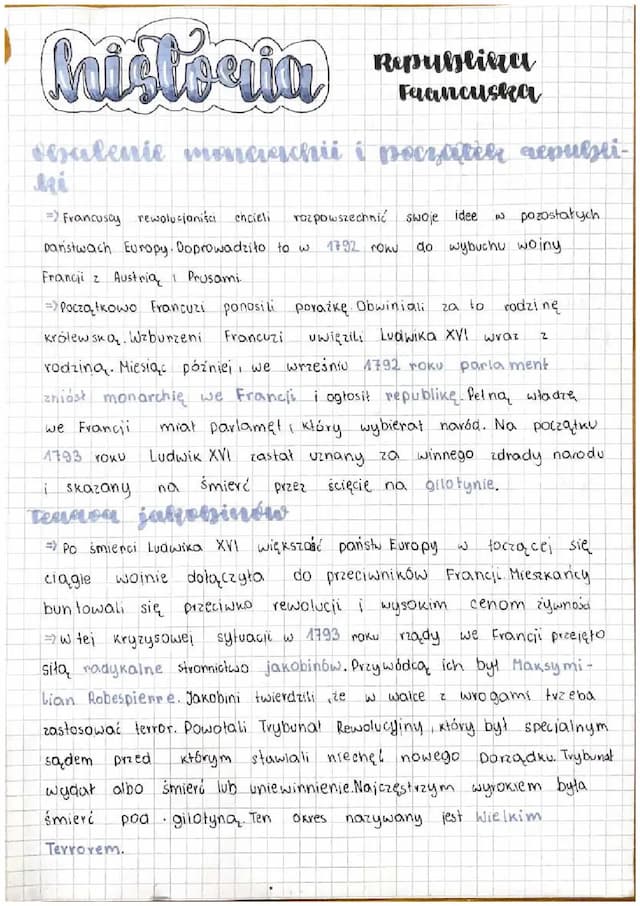 historia
Republika
Francuska
obalenie monarchii i początek republi-
ki
=> Francuscy rewolucjoniści chcieli rozpowszechnić swoje idee w pozostałych
państwach Europy. Doprowadziło to w 1792 roku do wybuchu wojny
Francji z Austrią i Prusami.
=> Początkowo Francuzi ponosili porażkę. Obwiniali za to rodzinę
królewską. Wzburzeni Francuzi uwięzili Ludwika XVI wraz z
rodziną. Miesiąc później, we wrześniu 1792 roku parlament
zniósł monarchię we Francji i ogłosił republikę. Pełną władzę
we Francji miał parlamęt, który wybierał naród. Na początku
1793 roku Ludwik XVI zastał uznany za winnego zdrady narodu
i skazany na śmierć przez ścięcie na gilotynie.
Terror jakobinów
=> Po śmierci Ludwika XVI większość państw Europy w toczącej się
ciągle wojnie dołączyła do przeciwników Francji. Mieszkańcy
buntowali się przeciwko rewolucji i wysokim cenom żywności
=> w tej kryzysowej sytuacji w 1793 roku rządy we Francji przejęło
siłą radykalne stronnictwo jakobinów. Przywódcą ich był Maksymi-
lian Robespierre. Jakobini twierdzili, że w walce z wrogami trzeba
zastosować terror. Powołali Trybunał Rewolucyjny, który był specjalnym
sądem przed którym stawiali niechęt nowego porządku. Trybunał
wydał albo śmierć lub uniewinnienie. Najczęstrzym wyrokiem była
śmierć pod gilotyną. Ten okres nazywany jest Wielkim
Terrorem.